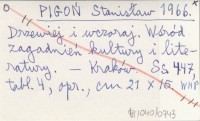 PIGOŃ Stanisław 1966.
Drzewiej i wczoraj. Wśród
zagadnień kultury i lite-
ratury. – Kraków. Ss 447,
tabl. 4, opr., cm 21 x 15. WHP